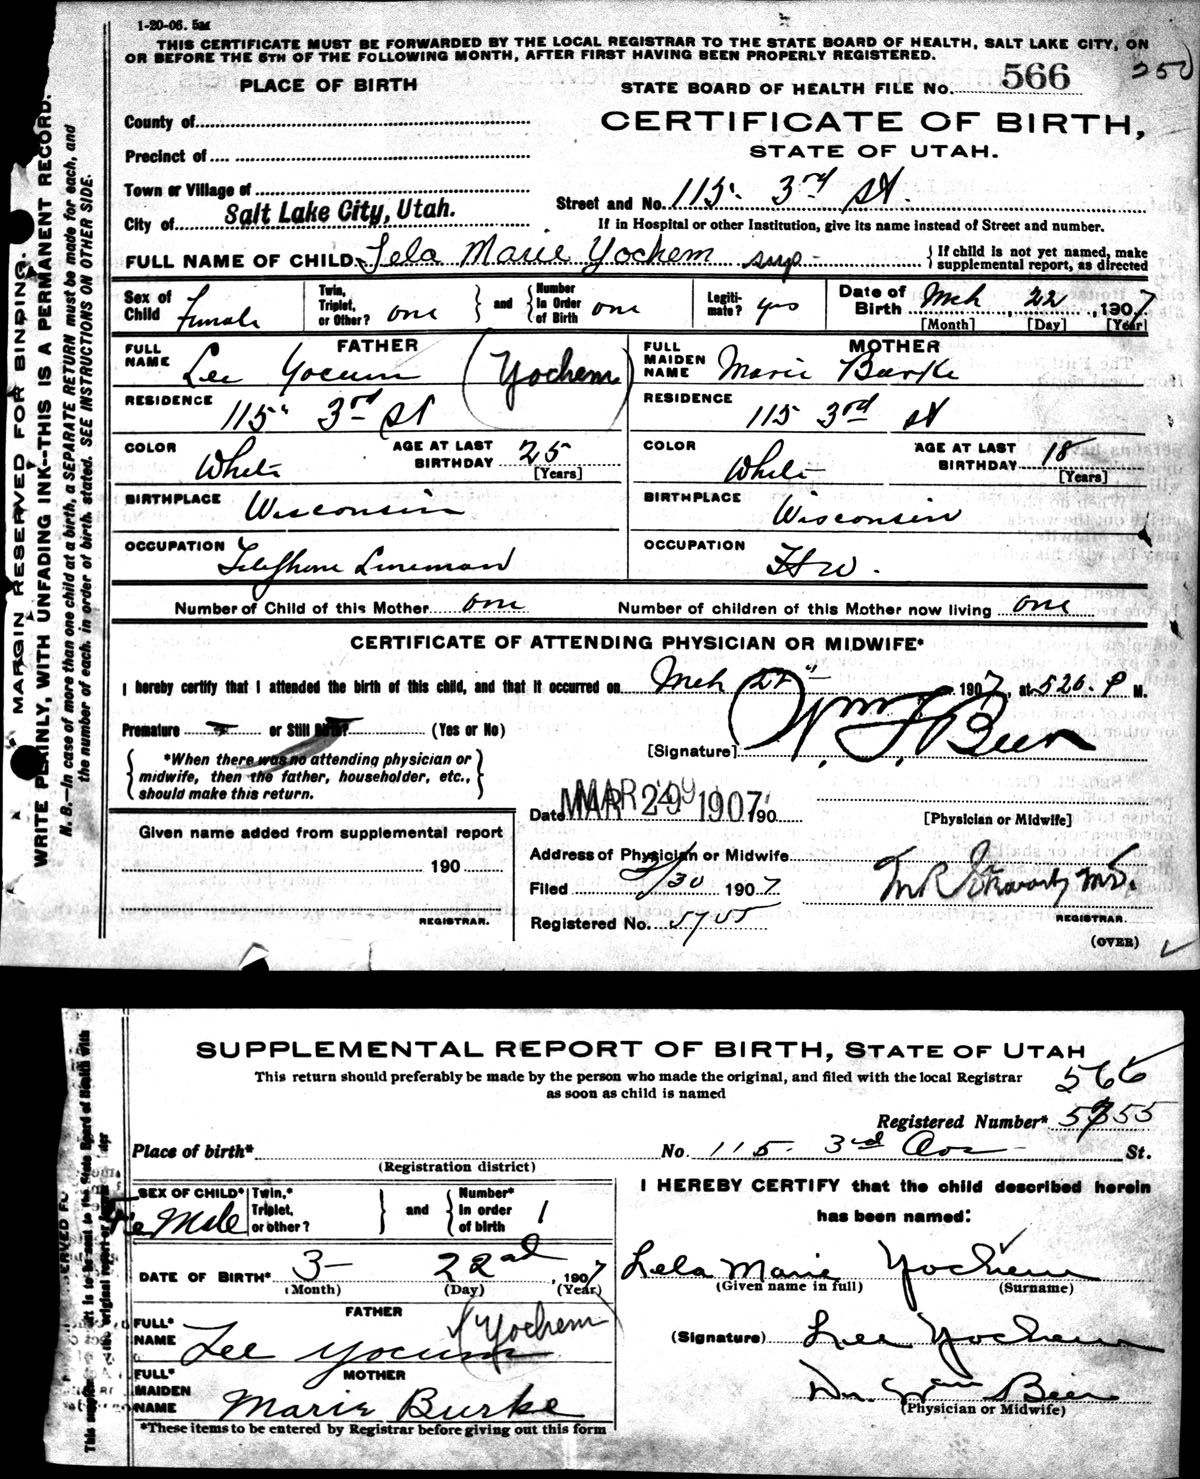 1-20-06. 5M
THIS CERTIFICATE MUST BE FORWARDED BY THE LOCAL REGISTRAR TO THE STATE BOARD OF HEALTH, SALT LAKE CITY, ON
OR BEFORE THE 5TH OF THE FOLLOWING MONTH, AFTER FIRST HAVING BEEN PROPERLY REGISTERED.
250
PLACE OF BIRTH
STATE BOARD OF HEALTH FILE No. 566
County of
CERTIFICATE OF BIRTH,
Precinct of
STATE OF UTAH.
Town or Village of
Street and No. 115 3rd St.
City of Salt Lake City, Utah.
If in Hospital or other Institution, give its name instead of Street and number.
FULL NAME OF CHILD Lela Marie Yochem sup- { If child is not yet named, make supplemental report, as directed
Sex of Child Female Twin, Triplet, or Other? one } and { Number In Order of Birth one Legitimate? yes Date of Birth Mch 22, 1907
[Month] [Day] [Year]
FATHER
FULL NAME Lee Yocum (Yochem)
MOTHER
FULL MAIDEN NAME Marie Burke
RESIDENCE 115 3rd St
RESIDENCE 115 3rd St
COLOR White AGE AT LAST BIRTHDAY 25 [Years]
COLOR White AGE AT LAST BIRTHDAY 18 [Years]
BIRTHPLACE Wisconsin
BIRTHPLACE Wisconsin
OCCUPATION Telephone Lineman
OCCUPATION H W.
Number of Child of this Mother one Number of children of this Mother now living one
CERTIFICATE OF ATTENDING PHYSICIAN OR MIDWIFE*
I hereby certify that I attended the birth of this child, and that it occurred on Mch 22" 1907, at 520. P M.
Premature or Still Birth? (Yes or No)
[Signature] Wm. F. Beer
*When there was no attending physician or
midwife, then the father, householder, etc.,
should make this return.
Date MAR 29 1907 190
[Physician or Midwife]
Given name added from supplemental report
190
REGISTRAR.
Address of Physician or Midwife
Filed 3/30 1907
REGISTRAR.
Registered No. 5755
(OVER)
MARGIN RESERVED FOR BINDING.
WRITE PLAINLY, WITH UNFADING INK--THIS IS A PERMANENT RECORD.
N. B.—In case of more than one child at a birth, a SEPARATE RETURN must be made for each, and
the number of each, in order of birth, stated. SEE INSTRUCTIONS ON OTHER SIDE.
SUPPLEMENTAL REPORT OF BIRTH, STATE OF UTAH
This return should preferably be made by the person who made the original, and filed with the local Registrar
as soon as child is named
566
Registered Number* 5755
Place of birth* No. 115. 3rd Ave St.
(Registration district)
SEX OF CHILD* Female Twin,* Triplet, or other? } and { Number* In order of birth 1
I HEREBY CERTIFY that the child described herein
has been named:
DATE OF BIRTH* 3- 22nd, 1907
(Month) (Day) (Year)
Lela Marie Yochem
(Given name in full) (Surname)
FATHER
FULL* NAME Lee Yocum (Yochem)
(Signature) Lee Yochem
MOTHER
FULL* MAIDEN NAME Marie Burke
Dr Wm Beer
(Physician or Midwife)
*These items to be entered by Registrar before giving out this form